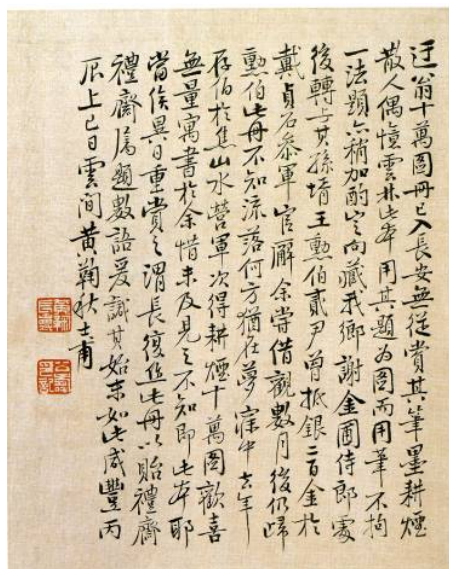 迂翁十萬圖冊已入長安無從賞其筆墨耕煙
散人偶憶雲林此本用其題為圖而用筆不拘
一法題亦稍加酌定向藏我鄉謝金圃侍郎處
後轉与其孫壻王勲伯貳尹曾抵銀二百金於
戴貞石叅軍官廨余嘗借觀數月後仍歸
勲伯此冊不知流落何方猶在夢寐中去年
存伯於焦山水營軍次得耕煙十萬圖歡喜
無量寓書於余惜未及見之不知即此本耶
當俟異日重賞之渭長復此冊以貽禮齋
禮齋屬題數語爰識其始末如此咸豐丙
辰上巳日雲間黃鞠秋士甫